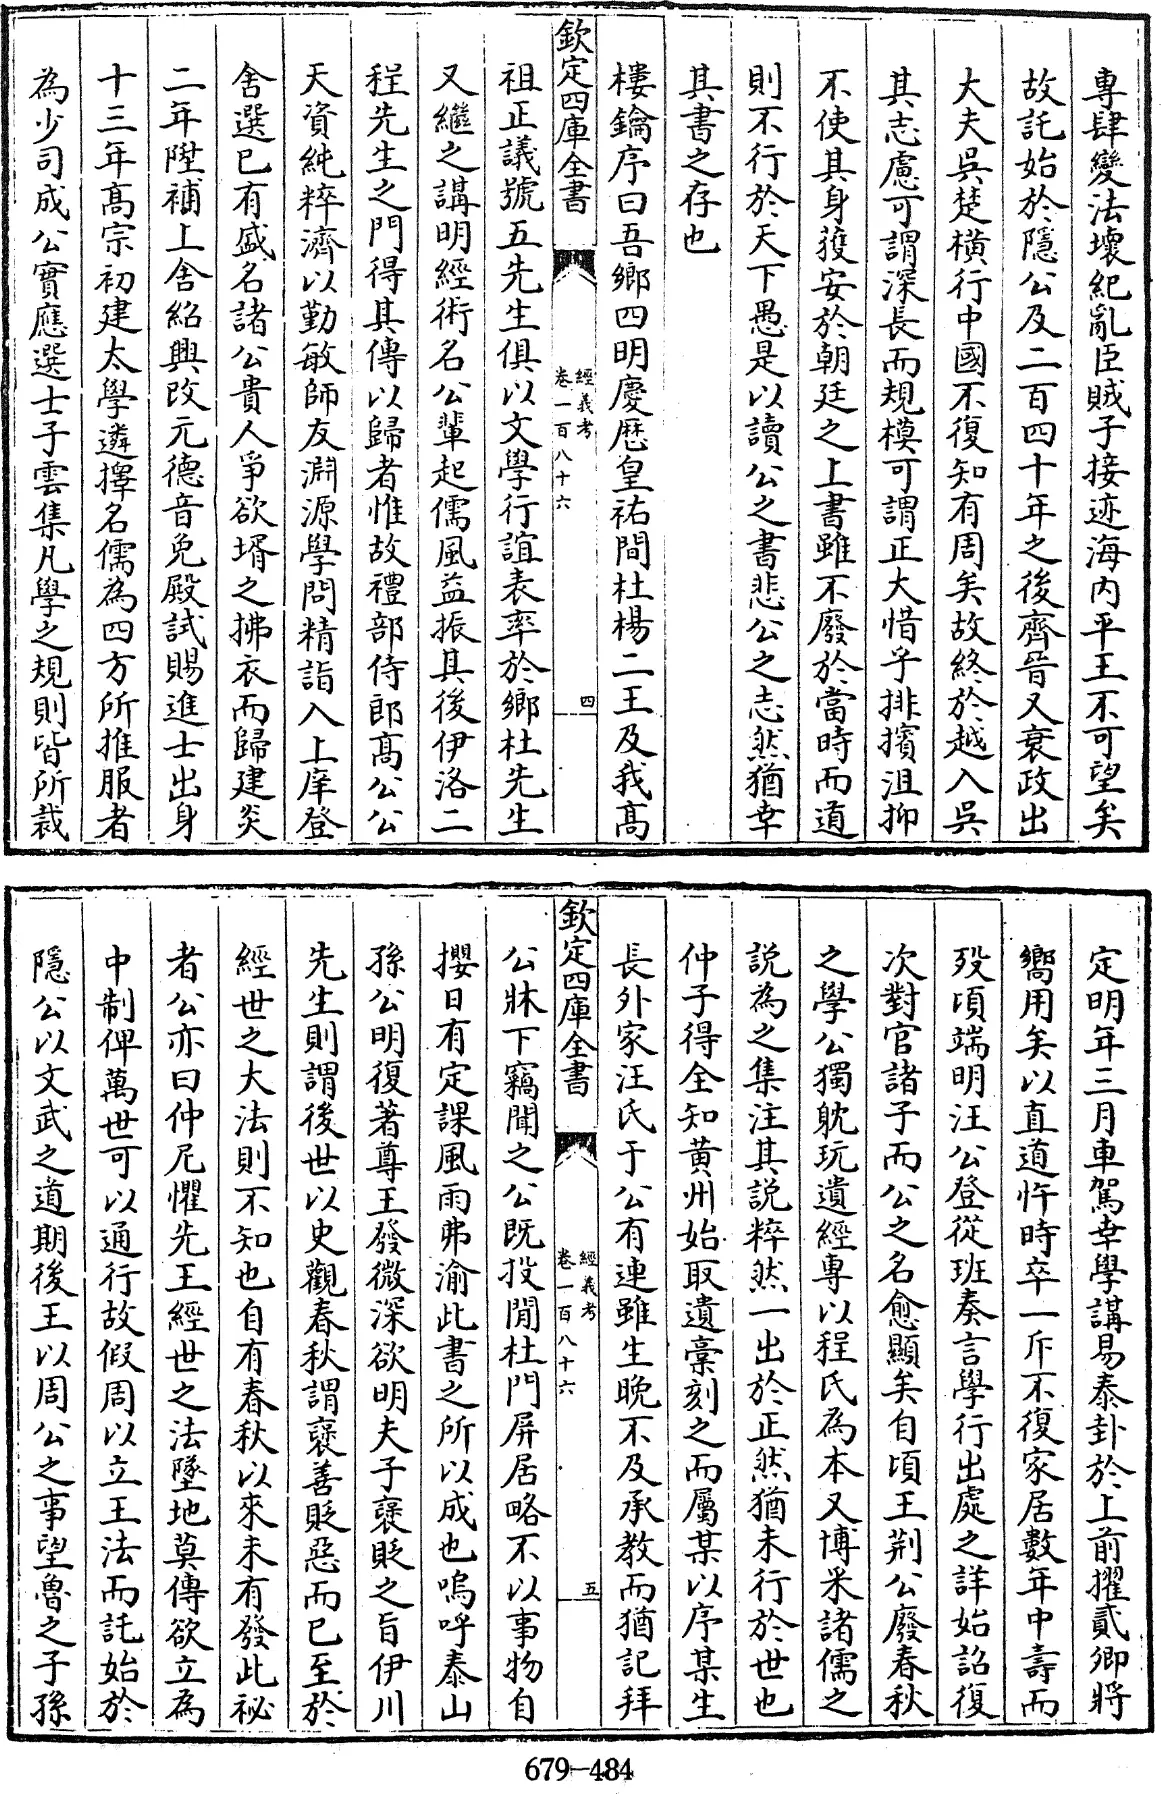 專肆變法壞紀亂臣賊子接迹海内平王不可望矣
故託始於隱公及二百四十年之後齊晉又衰政出
大夫吳楚橫行中國不復知有周矣故終於越入吳
其志慮可謂深長而規模可謂正大惜乎排擯沮抑
不使其身獲安於朝廷之上書雖不廢於當時而道
則不行於天下愚是以讀公之書悲公之志然猶幸
其書之存也
樓鑰序曰吾鄉四明慶厯皇祐間杜楊二王及我高
欽定四庫全書
經義考
卷一百八十六
四
祖正議號五先生俱以文學行誼表率於鄉杜先生
又繼之講明經術名公輩起儒風益振其後伊洛二
程先生之門得其傳以歸者惟故禮部侍郎高公公
天資純粹濟以勤敏師友淵源學問精詣入上庠登
舍選已有盛名諸公貴人爭欲壻之拂衣而歸建炎
二年陞補上舍紹興改元德音免殿試賜進士出身
十三年高宗初建太學遴擇名儒為四方所推服者
為少司成公實應選士子雲集凡學之規則皆所裁
定明年三月車駕幸學講易泰卦於上前擢貳卿將
嚮用矣以直道忤時卒一斥不復家居數年中壽而
歿頃端明汪公登從班奏言學行出處之詳始詔復
次對官諸子而公之名愈顯矣自頃王荆公廢春秋
之學公獨躭玩遺經專以程氏為本又博采諸儒之
說為之集注其說粹然一出於正然猶未行於世也
仲子得全知黄州始取遺稾刻之而屬某以序某生
長外家汪氏于公有連雖生晚不及承教而猶記拜
欽定四庫全書
經義考
卷一百八十六
五
公牀下竊聞之公既投閒杜門屏居略不以事物自
攖日有定課風雨弗渝此書之所以成也嗚呼泰山
孫公明復著尊王發微深欲明夫子襃貶之旨伊川
先生則謂後世以史觀春秋謂襃善貶惡而已至於
經世之大法則不知也自有春秋以來未有發此祕
者公亦曰仲尼懼先王經世之法墜地莫傳欲立為
中制俾萬世可以通行故假周以立王法而託始於
隱公以文武之道期後王以周公之事望魯之子孫
679-484